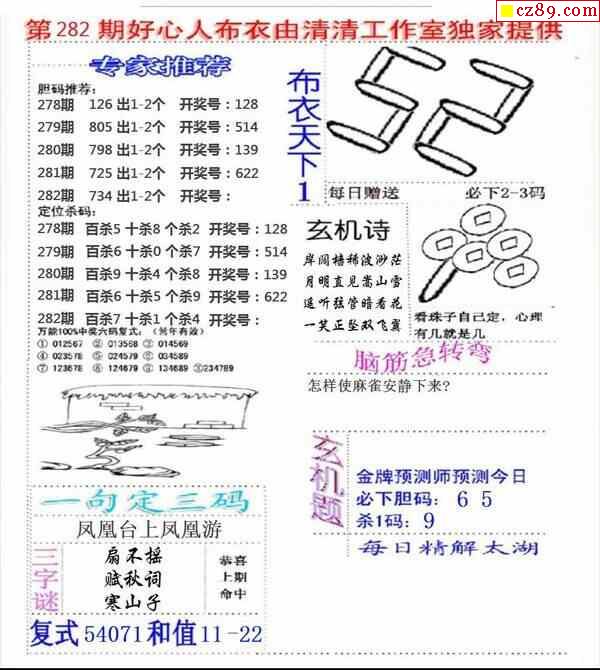 cz89.com
第282期好心人布衣由清清工作室独家提供
专家推荐
胆码推荐:
278期 126出1-2个 开奖号:128
279期 805出1-2个 开奖号:514
280期 798出1-2个 开奖号:139
281期 725出1-2个 开奖号:622
282期 734出1-2个 开奖号:
定位杀码:
278期 百杀5 十杀8 个杀2 开奖号:128
279期 百杀6 十杀0 个杀7 开奖号:514
280期 百杀9 十杀4 个杀8 开奖号:139
281期 百杀6 十杀5 个杀9 开奖号:622
282期 百杀7 十杀1 个杀4 开奖号:
万能100%中奖六码复式:(常年有效)
①012567 ②013568 ③014569
④023578 ⑤024579 ⑥034589
⑦123678 ⑧124679 ⑨134689 ⑩234789
一句定三码
凤凰台上凤凰游
三字谜
扇不摇
赋秋词
寒山子
恭喜
上期
命中
复式54071和值11-22
布衣天下1
52
每日赠送 必下2-3码
玄机诗
岸阔樯稀波渺茫
月明直见嵩山雪
遥听弦管暗看花
一笑正坠双飞翼
看珠子自己定,心理
有几就是几
脑筋急转弯
怎样使麻雀安静下来?
玄机题
金牌预测师预测今日
必下胆码: 6 5
杀1码: 9
每日精解太湖